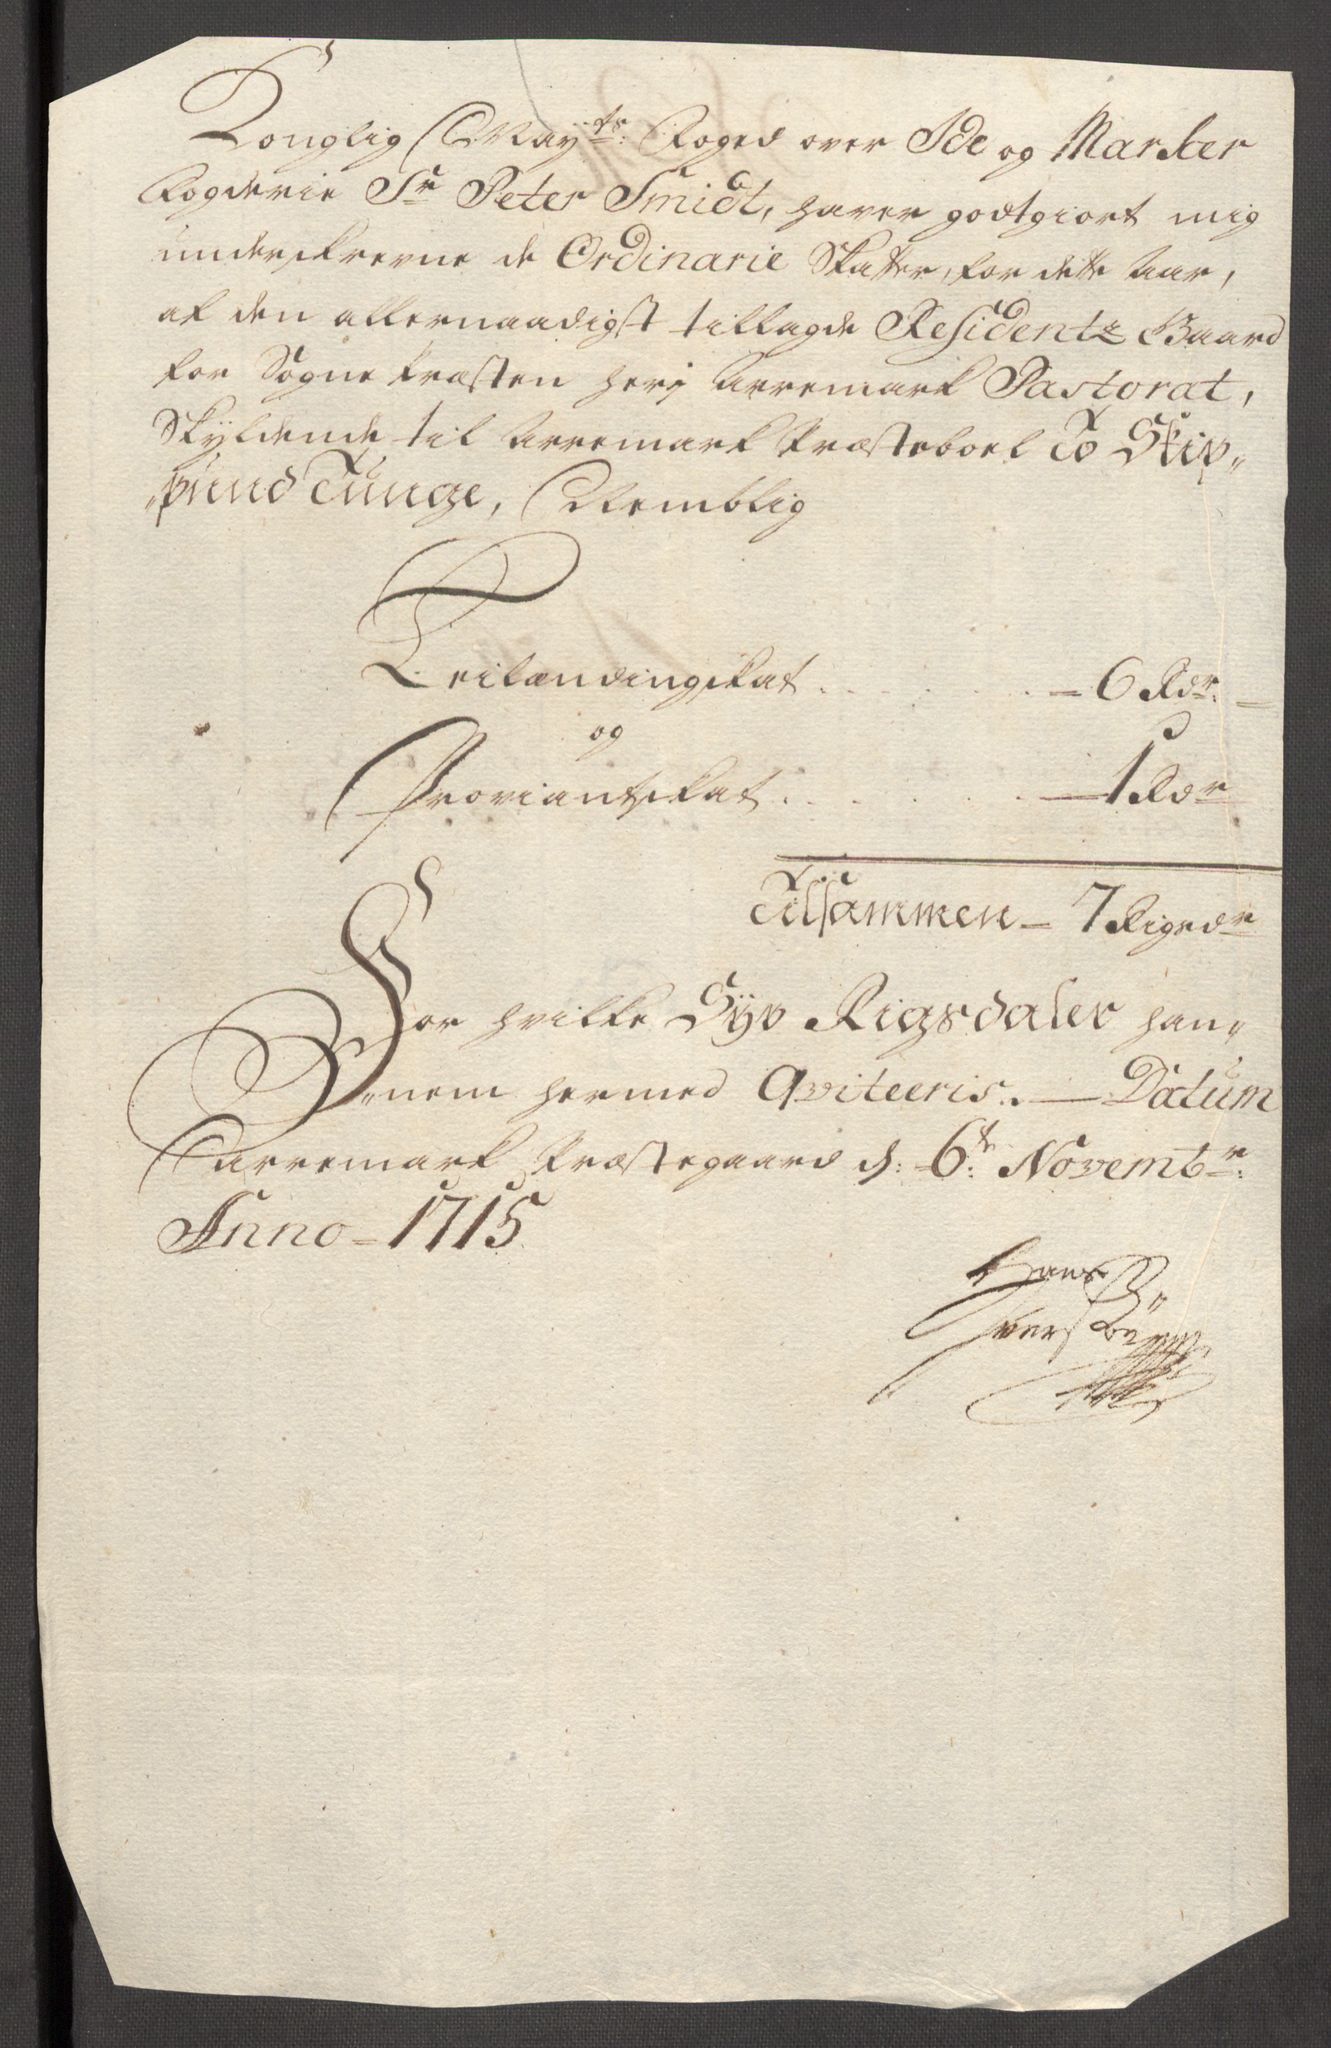 Konglig Mayts: Foged over Ide og Marker
Fogderie Sr Peter Smidt, haver godtgiort mig
underskrevne de Ordinarie Skatter, for dette Aar,
af den allernaadigst tillagde Residentz Gaard
for Sogne Præsten her i Arremark Pastorat,
Skyldende til Arremark Præsteboel To Skip„
„pund Tunge, Nemblig
Leilændingskat . . . . . . – 6 Rdr. –
og
Proviantskat . . . . . . – 1 Rdr
Tilsammen – 7 Rigsdr
For hvilke Syv Rigsdaler han„
„nem hermed Qviteeris. – Datum
Arremark Præstegaard d: 6t: Novembr:
Anno – 1715.
Hans